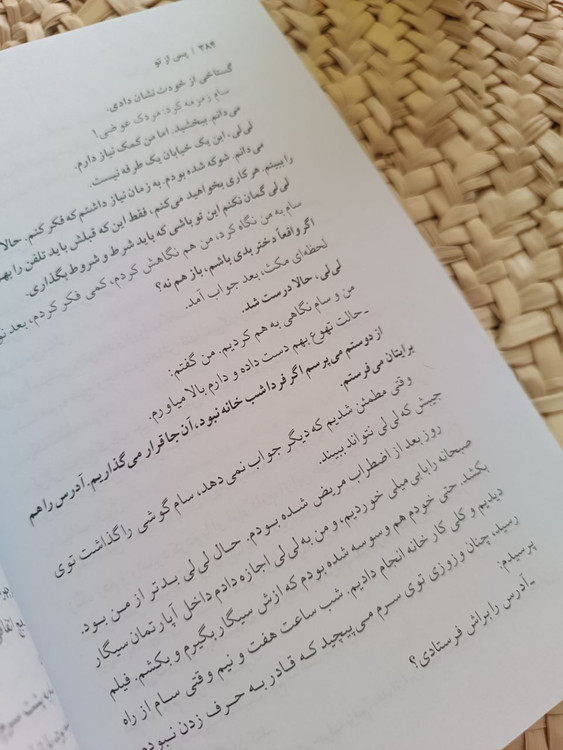 ۳۸۴ | پس از تو
گستاخی از خودت نشان دادی.
سام زمزمه کرد: مردک عوضی!
می‌دانم. ببخشید. اما من کمک نیاز دارم.
لی‌لی، این یک خیابان یک طرفه نیست.
می‌دانم. شوکه شده بودم. به زمان نیاز داشتم که فکر کنم. حالا
را ببینم. هر کاری بخواهید می‌کنم، فقط این که قبلش باید تلفن را بهم
لی‌لی گمان نکنم این تو باشی که باید شرط و شروط بگذاری.
سام به من نگاه کرد، من هم نگاهش کردم، کمی فکر کردم، بعد
اگر واقعاً دختر بدی باشم، باز هم نه؟
لحظه‌ای مکث، بعد جواب آمد.
لی‌لی، حالا درست شد.
من و سام نگاهی به هم کردیم. من گفتم:
ـ حالت تهوع بهم دست داده و دارم بالا میاورم.
از دوستم می‌پرسم اگر فردا شب خانه نبود، آن جا قرار می‌گذاریم. آدرس را هم
برایتان می‌فرستم.
وقتی مطمئن شدیم که دیگر جواب نمی‌دهد، سام گوشی را گذاشت توی
جیبش که لی‌لی نتواند ببیند.
روز بعد از اضطراب مریض شده بودم. حال لی‌لی بدتر از من بود.
صبحانه را با بی‌میلی خوردیم، و من به لی‌لی اجازه دادم داخل آپارتمان سیگار
بکشد. حتی خودم هم وسوسه شده بودم که ازش سیگار بگیرم و بکشم. فیلم
دیدیم و کلی کار خانه انجام دادیم. شب ساعت هفت و نیم وقتی سام از راه
رسید، چنان وزوزی توی سرم می‌پیچید که قادر به حرف زدن نبودم
پرسیدم:
ـ آدرس را براش فرستادی؟